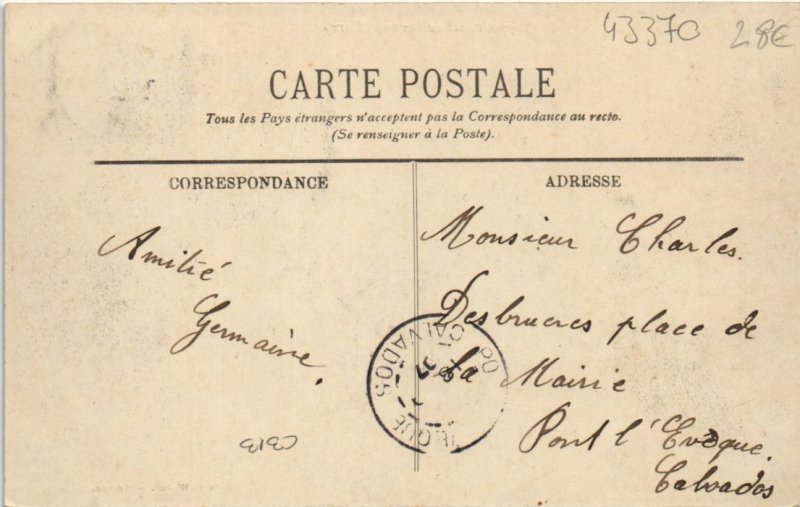 43370 28€
CARTE POSTALE
Tous les Pays étrangers n'acceptent pas la Correspondance au recto.
(Se renseigner à la Poste).
CORRESPONDANCE
ADRESSE
Amitié
Germaine.
Monsieur Charles.
Desbrueres place de
La Mairie
Pont l'Evêque.
Calvados
CALVADOS